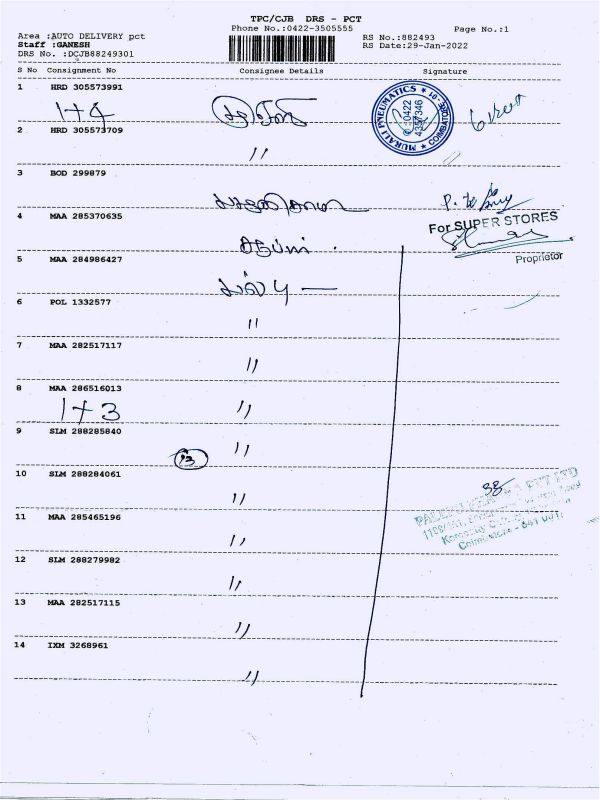 TPC/CJB DRS - PCT
Phone No.:0422-3505555
Page No.:1
Area :AUTO DELIVERY pct
RS No.:882493
Staff :GANESH
RS Date:29-Jan-2022
DRS No. :DCJB88249301
S No Consignment No Consignee Details Signature
1 HRD 305573991
1+4
MURALI PNEUMATICS
COIMBATORE-10
0422
4357346
2 HRD 305573709
"
3 BOD 299879
4 MAA 285370635
For SUPER STORES
Proprietor
5 MAA 284986427
6 POL 1332577
"
7 MAA 282517117
"
8 MAA 286516013
1+3 "
9 SLM 288285840
13 "
10 SLM 288284061
"
11 MAA 285465196
"
12 SLM 288279982
"
13 MAA 282517115
"
14 IXM 3268961
"